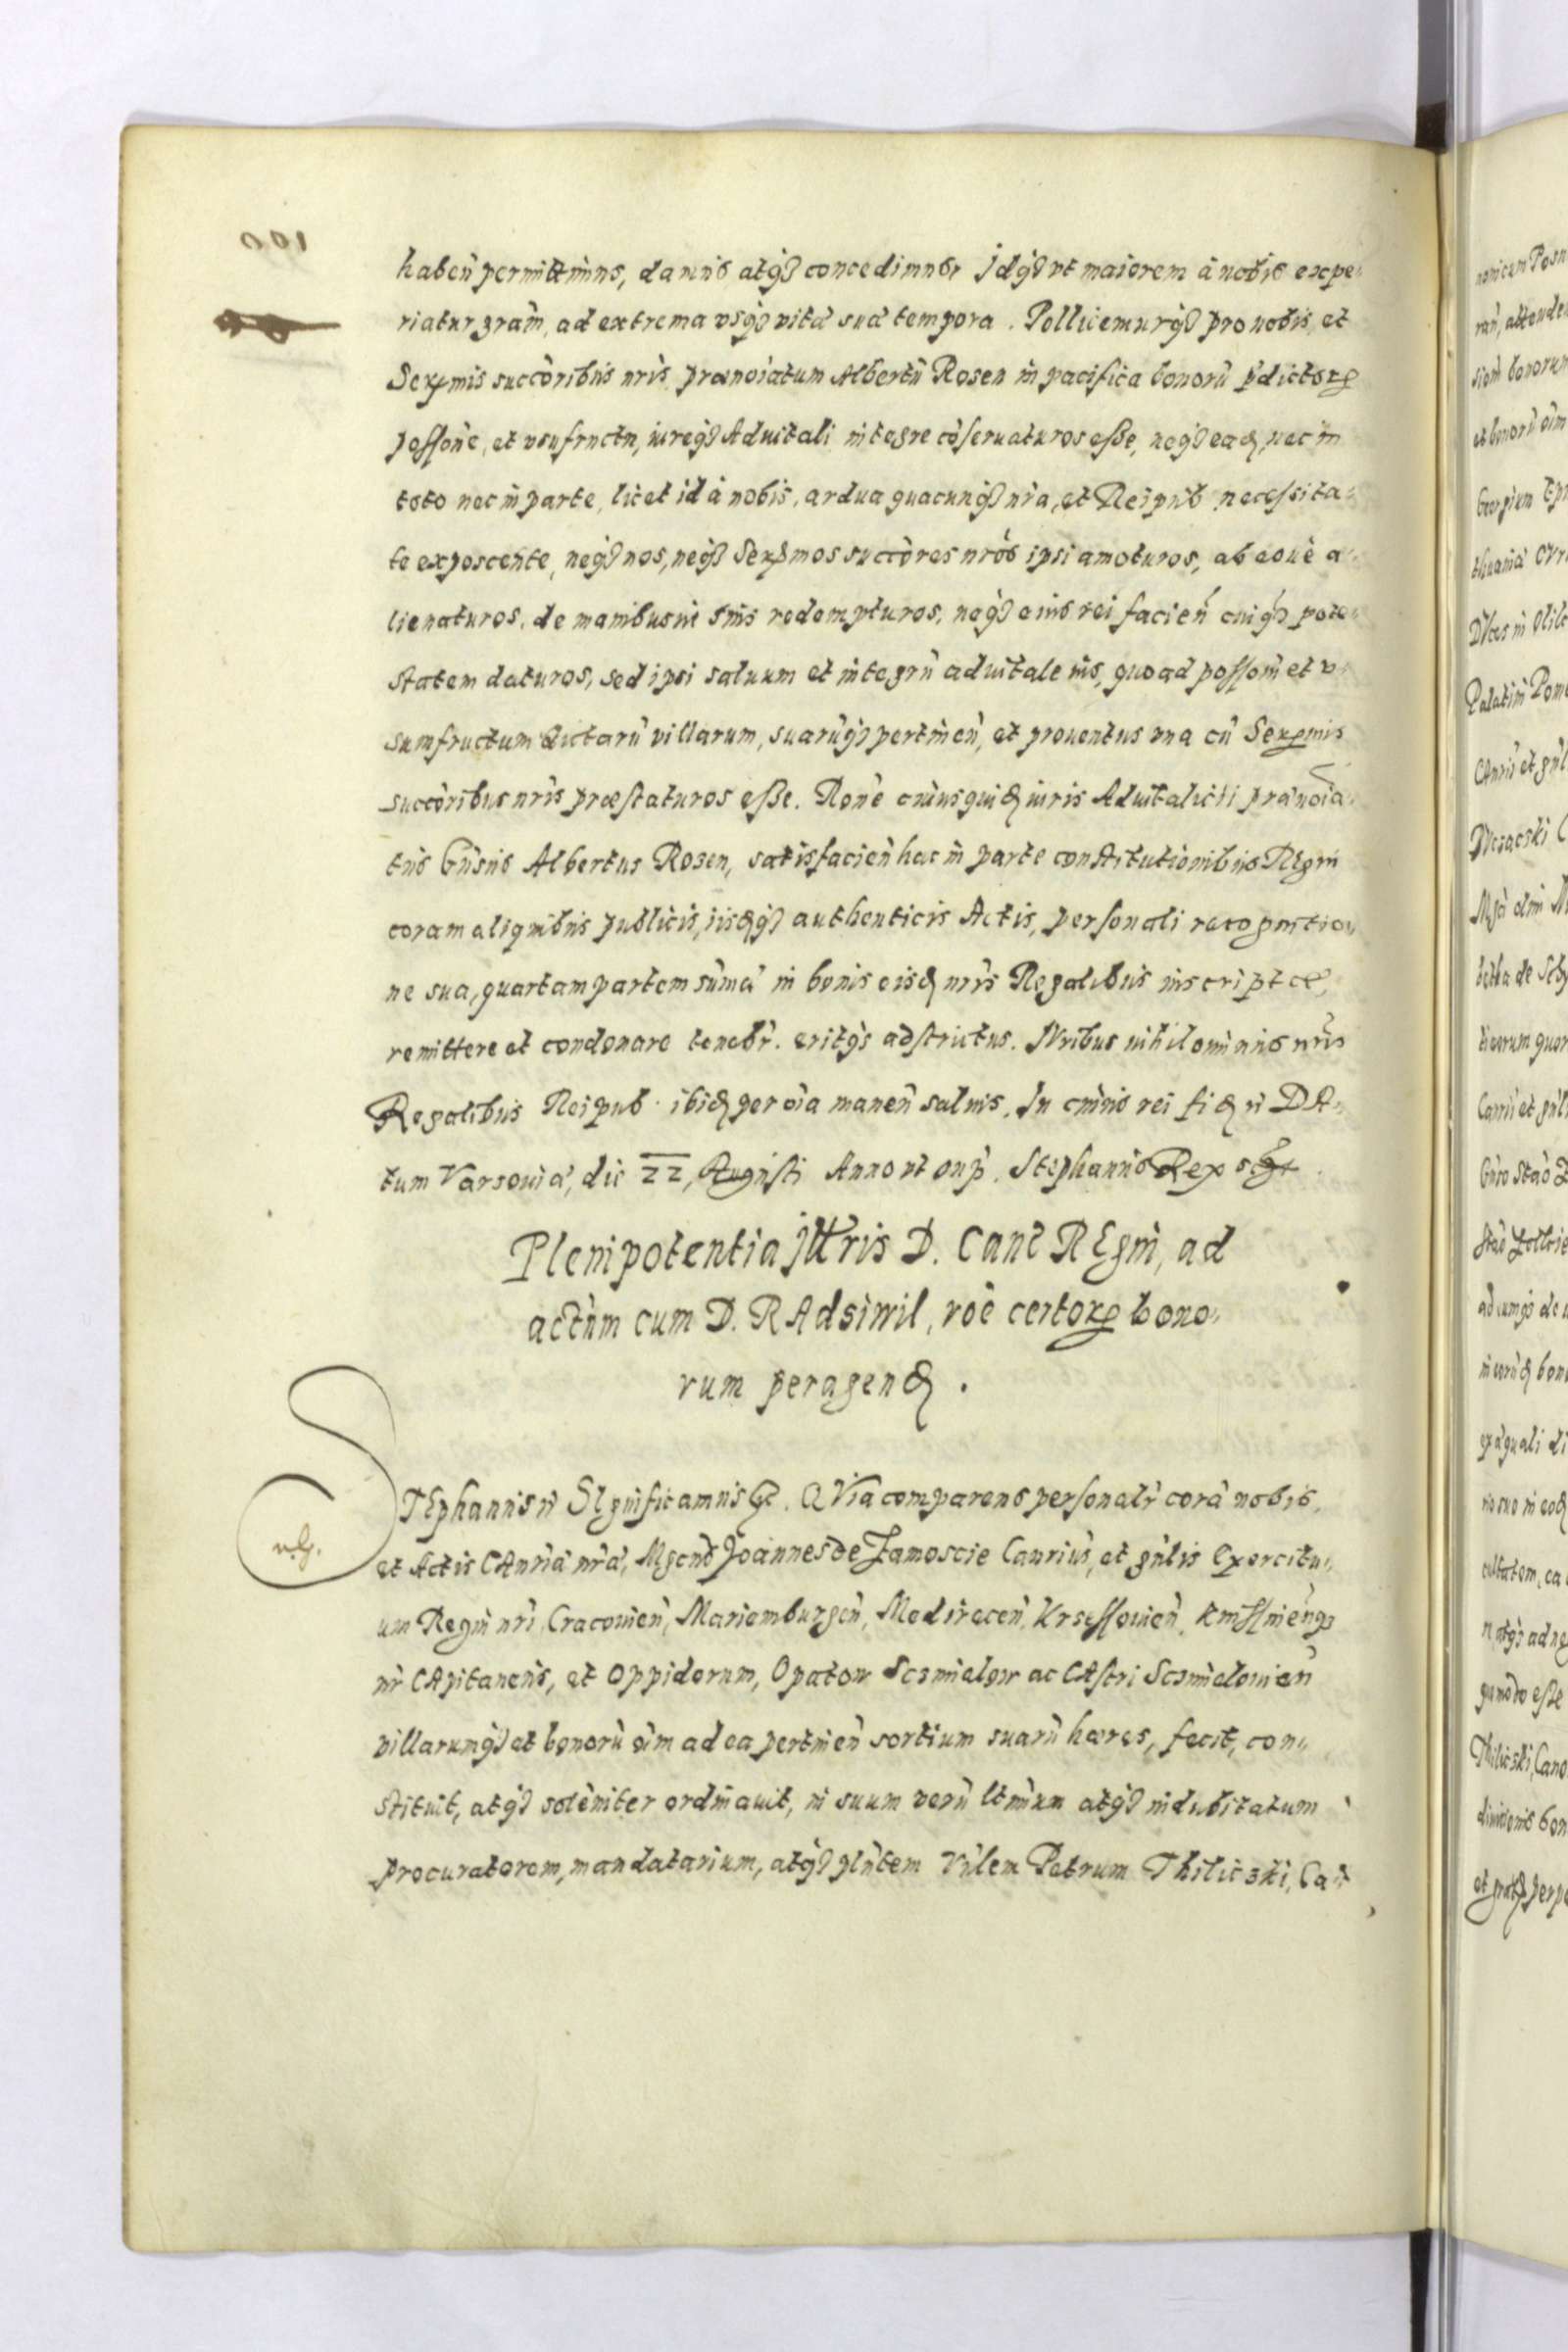 habeñ permittimus, damus atq3 concedimus, Jdq3 vt maiorem à nobis expe-
riatur grãm, ad extrema vsq3 vitæ suæ tempora. Pollicemurq3 pro nobis, et
Serẽmis succõribus nr̃is prænoĩatum Albertũ Rosen in pacifica bonorũ p̃dictorꝝ
possoñe, et vsufructu, iureq3 Aduitali integre cõseruaturos esse, neq3 eađ, nec in
toto nec in parte, licet id à nobis, ardua quacunq3 nr̃a, et Reipub necessita-
te exposcente, neq3 nos, neq3 Serẽmos succõres nr̃os ipsi amoturos, ab eoue a-
lienaturos, de manibusue suis redempturos, neq3 eius rei facieñ cuiq3 pote-
statem daturos, sed ipsi saluum et integrũ aduitale ius, quoad possom̃ et v-
sumfructum dictarũ villarum, suarũq3 pertineñ, et prouentus vna cũ Serẽmis
succõribus nr̃is præstaturos esse. Roñe cuius quiđ iuris Aduitalicii prænoĩa-
tus Gñsus Albertus Rosen, satisfacieñ hac in parte constitutionibus REgni
coram aliquibus publicis, iisđq3 authenticis Actis, personali recognitio-
ne sua, quartam partem sum̃æ in bonis eisđ nr̃is Regalibus inscriptæ,
remittere et condonare tenebr̃. eritq3 adstrictus. IVribus nihilominus nr̃is
Regalibus Reipub. ibiđ per oĩa maneñ saluis. In cuius rei fiđ ñ DA-
tum Varsouiæ, die 22, Augusti Anno vt sup̃. Stephanus Rex sßt
Plenipotentia Jllris D. Canc REgni, ad
actum cum D. RAdsiwil, roẽ certorꝝ bono-
rum peragenđ.
STEphanus ñ SIgnificamus &c. QVia comparens personalr̃ corã nobis,
et Actis CAnr̃iæ nr̃æ, Mgcus Joannes de Zamoscie Canrius, et gñlis Exercitu-
um Regni nr̃i, Cracouieñ, Mariemburgeñ, Medireceñ, Krsessouieñ, Knissineñq3
nr̃ CApitaneus, et oppidorum, Opatow Sczmielow ac CAstri Sczmielouieñ
villarumq3 et bonorũ oĩm ad ea pertineñ sortium suarũ hæres, fecit, con-
stituit, atq3 solẽniter ordinauit, in suum verũ ltimum atq3 indubitatum
procuratorem, mandatarium, atq3 plñtem Vñlem Petrum Thiliczki, Ca-